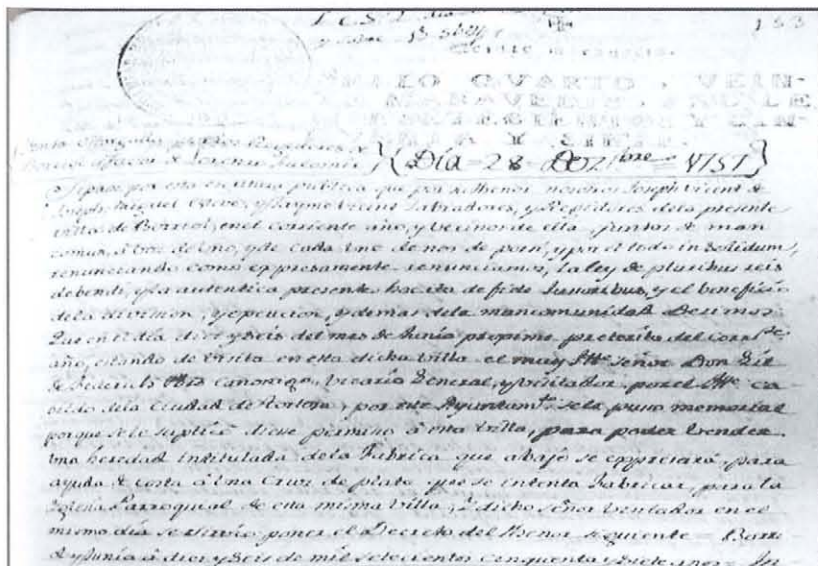 153
SELLO QVARTO, VEIN-
MARAVEDIS, AÑO DE
Venta otorgada por los Regidores de
Borriol a favor de Lorenzo Palomir
Día 28 1757
Sepase por esta escritura publica que por su thenor nosotros Joseph Vicent &
Joseph Miguel Esteve, y Jayme Vicent Labradores, y Regidores de la presente
villa de Borriol, en el corriente año, y vecinos de ella, juntos de man
comun, á voz de uno, y de cada uno de nos de por si, y por el todo in solidum,
renunciando como expresamente renunciamos, la ley de pluribus reis
debendi, y la autentica presente hocita de fide Iussoribus, y el beneficio
de la division, y epcucion, y demas de la mancomunidad Desimos
Que en el dia diez y seis del mes de Junio proximo preterito del corr.te
año, estando de visita en esta dicha Villa el muy Ille Señor Don Gil
de Federich Pbro canonigo, Vicario General, y visitador, por el Ille ca-
bildo de la Ciudad de Tortosa, por este Ayuntam.to se le puso memorial
porque se le suplicó diese permiso á esta Villa, para poder vender
una heredad intitulada de la Fabrica que abajo se expresará, para
ayuda de costa á una Cruz de plata que se intenta Fabricar, para la
Iglesia Parroquial de esta misma Villa, y dicho Señor visitador en el
mismo dia se sirvió poner el Decreto del thenor siguiente Borri
ol y Junio á diez y seis de mil setecientos cinquenta y siete años = In